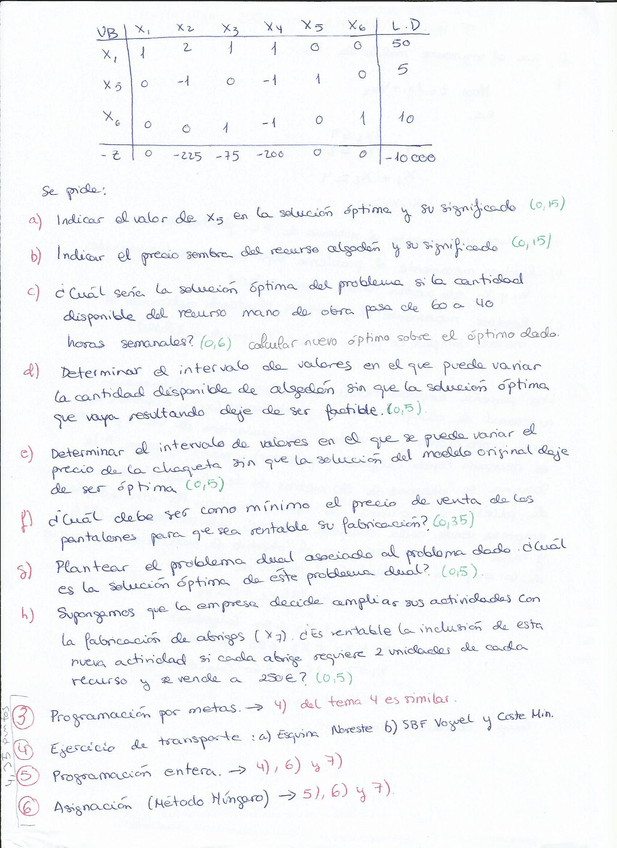 VB X1 X2 X3 X4 X5 X6 L.D
X1 1 2 1 1 0 0 50
X5 0 -1 0 -1 1 0 5
X6 0 0 1 -1 0 1 10
-Z 0 -225 -75 -200 0 0 -10000
Se pide:
a) Indicar el valor de X5 en la solución óptima y su significado (0,15)
b) Indicar el precio sombra del recurso algodón y su significado (0,15)
c) ¿Cuál sería la solución óptima del problema si la cantidad
disponible del recurso mano de obra pasa de 60 a 40
horas semanales? (0,6) calcular nuevo óptimo sobre el óptimo dado.
d) Determinar el intervalo de valores en el que puede variar
la cantidad disponible de algodón sin que la solución óptima
que vaya resultando deje de ser factible. (0,5).
e) Determinar el intervalo de valores en el que se puede variar el
precio de la chaqueta sin que la solución del modelo original deje
de ser óptima (0,5)
f) ¿Cuál debe ser como mínimo el precio de venta de los
pantalones para que sea rentable su fabricación? (0,35)
g) Plantear el problema dual asociado al problema dado. ¿Cuál
es la solución óptima de éste problema dual? (0,5).
h) Supongamos que la empresa decide ampliar sus actividades con
la fabricación de abrigos (X7). ¿Es rentable la inclusión de esta
nueva actividad si cada abrigo requiere 2 unidades de cada
recurso y se vende a 250€? (0,5)
3 Programación por metas. → 4) del tema 4 es similar.
4 Ejercicio de transporte: a) Esquina Noreste b) SBF Voguel y Coste Min.
5 Programación entera. → 4), 6) y 7)
6 Asignación (Método Húngaro) → 5), 6) y 7).
puntos